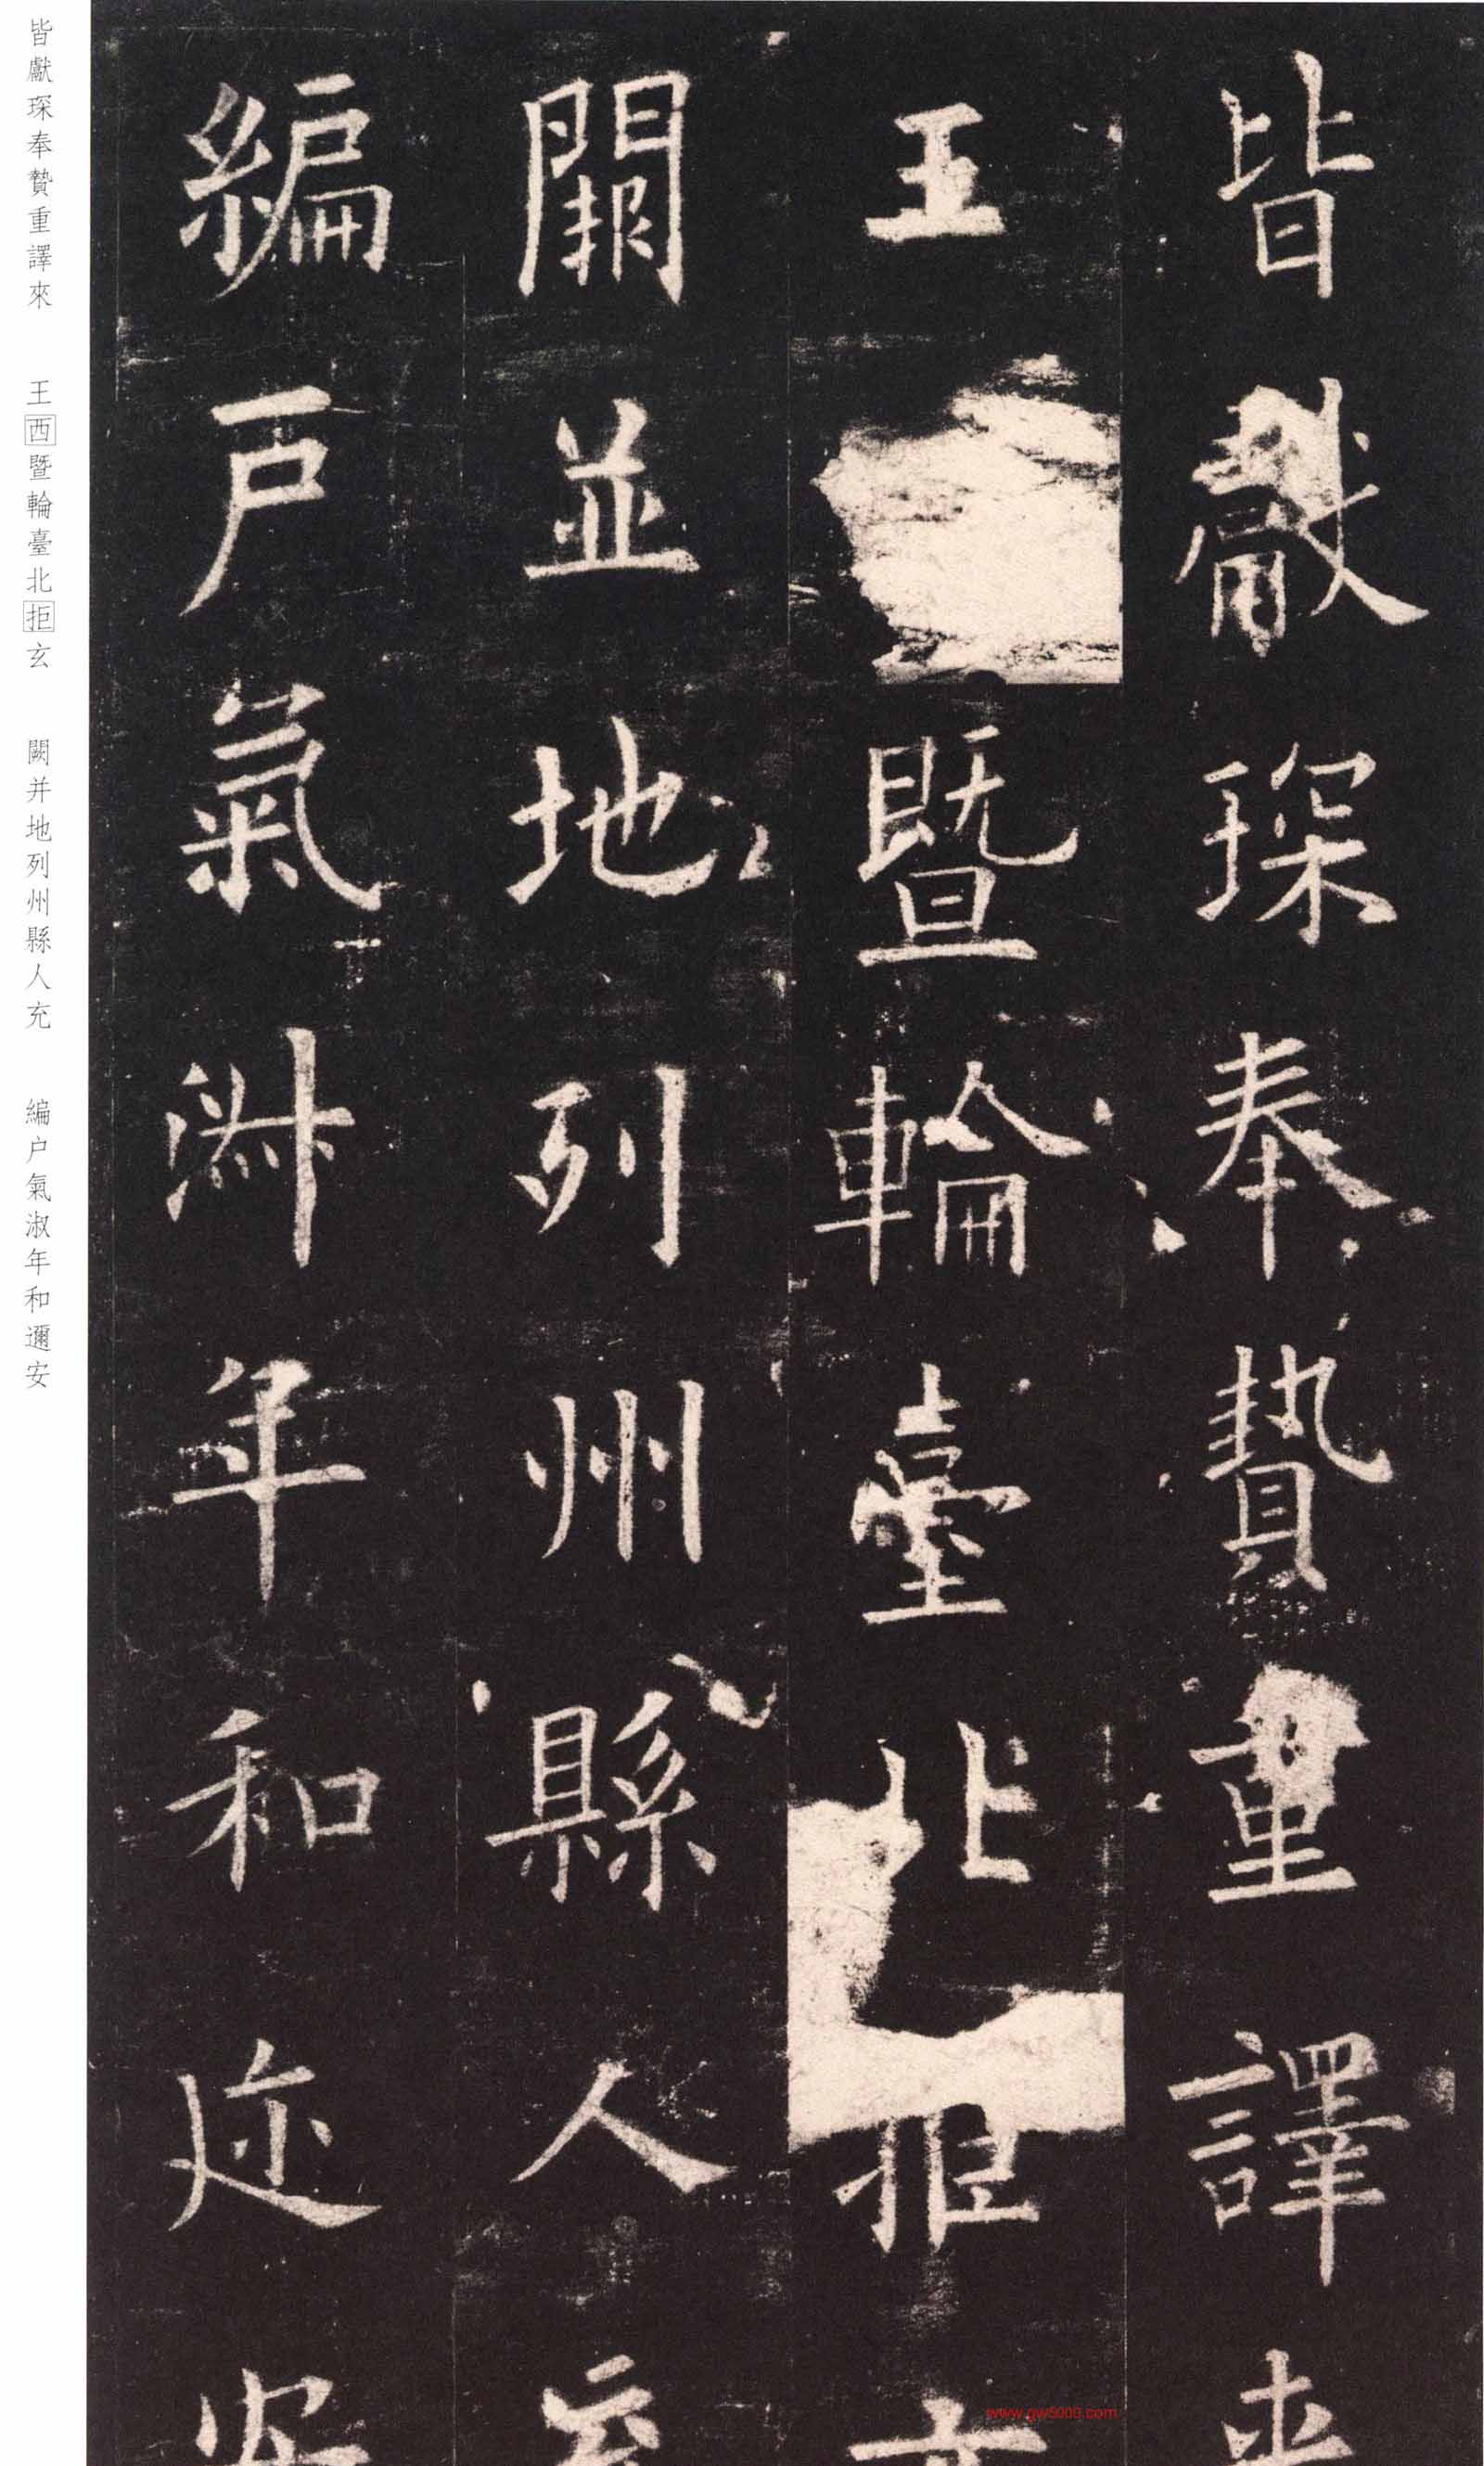 皆獻琛奉贄重譯來
王暨輪臺北拒玄
闕並地列州縣人充
編戶氣淑年和迩安
皆獻琛奉贄重譯來
王西暨輪臺北拒玄
闕并地列州縣人充
編户氣淑年和邇安
www.gw5000.com